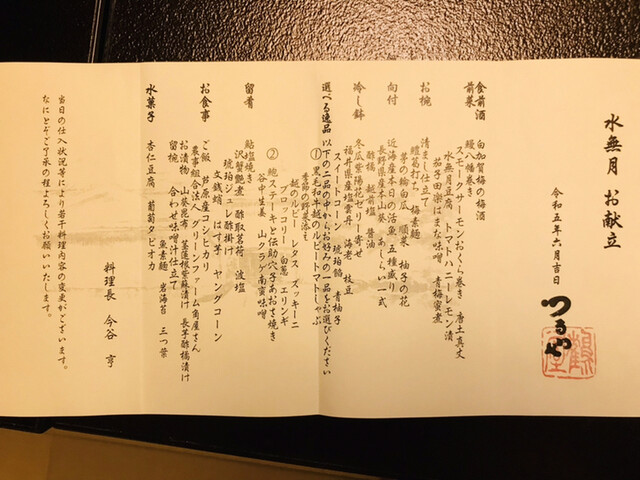 水無月 お献立
令和五年六月吉日
つるや
鶴屋
食前酒 白加賀梅の梅酒
前菜 鰻八幡巻き
スモークサーモンおくら巻き 唐土真丈
水無月豆腐 トマトハニーレモン漬
茄子田楽はまな味噌 青梅蜜煮
お椀 清まし仕立て
鱧葛打ち 梅素麺
茅の輪白瓜 順菜 柚子の花
向付 近海産本日の活魚 五種盛り
長野県産本山葵 あしらい一式
酢橘 越前塩 醤油
冷し鉢 冬瓜紫陽花ゼリー寄せ
福井県産塩雲丹 海老 枝豆
スイートコーン 琥珀餡 青柚子
選べる逸品 以下の二品の中からお好みの一品をお選びください
① 黒毛和牛越のルビートマトしゃぶ
季節の野菜添え
越のルビー レタス ズッキーニ
ブロッコリー 白葱 エリンギ
② 鮑ステーキと伝助穴子あおさ焼き
谷中生姜 山クラゲ南蛮味噌
留肴 鮎塩焼き
沢蟹艶煮 酢取茗荷 波塩
琥珀ジュレ酢掛け
文銭蛸 はす芋 ヤングコーン
お食事 ご飯 芦原産コシヒカリ
農事組合法人グリーンファーム角屋さん
お漬物 山葵昆布 茎蓮根紫蘇漬け 長芋酢橘漬け
留椀 合わせ味噌汁仕立て
魚素麺 岩海苔 三つ葉
水菓子 杏仁豆腐 葡萄タピオカ
料理長 今谷 亨
当日の仕入状況等により若干料理内容の変更がございます。
なにとぞご了承の程よろしくお願いいたします。